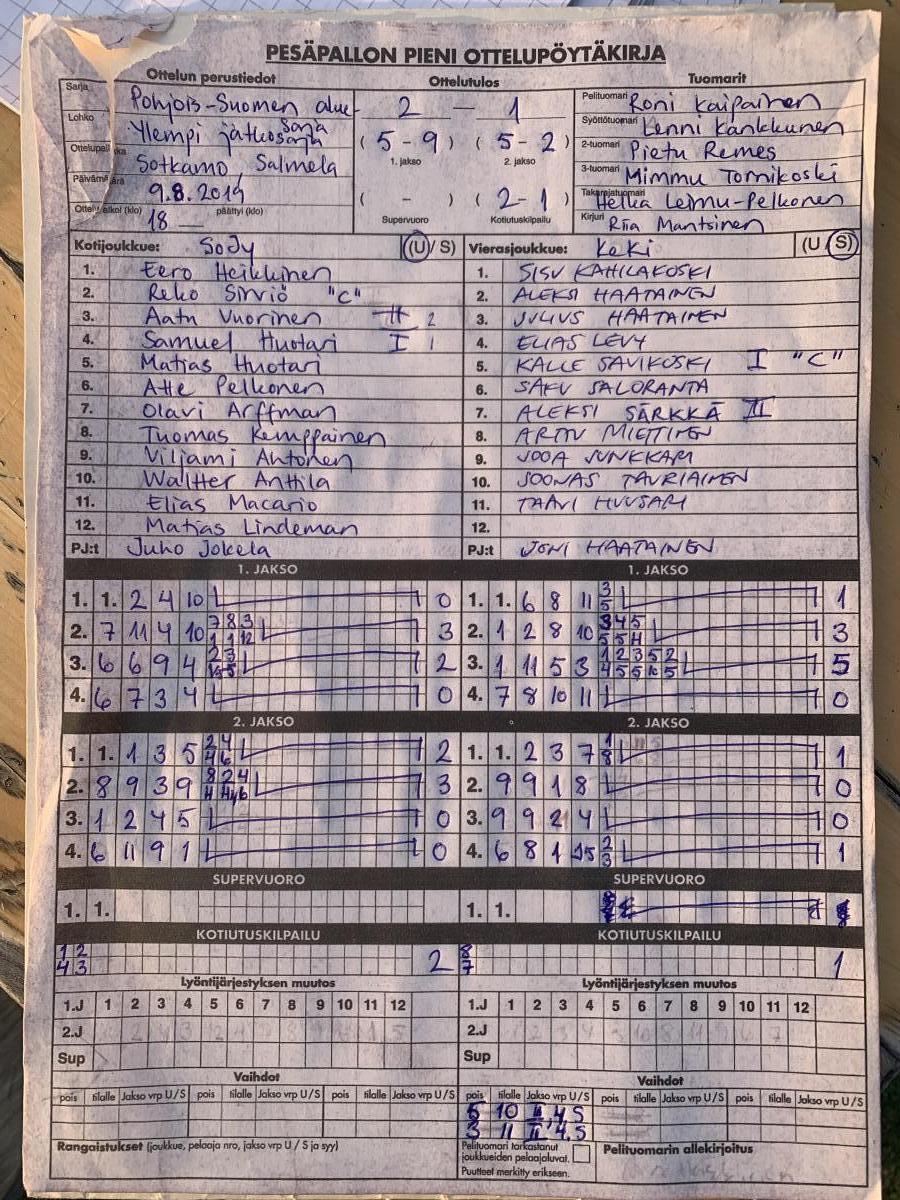 PESÄPALLON PIENI OTTELUPÖYTÄKIRJA
Ottelun perustiedot
Ottelutulos
Tuomarit
Sarja Pohjois-Suomen alue-
sarja
Lohko Ylempi jatkosarja
Sotkamo, Salmela
9.8.2019
18 — päättyi (klo)
2 — 1
( 5 - 9 ) ( 5 - 2 )
1. jakso 2. jakso
( - ) ( 2-1 )
Supervuoro Kotiutuskilpailu
Pelituomari Roni Kaipainen
Syöttötuomari Lenni Kankkunen
2-tuomari Pietu Remes
3-tuomari Mimmu Tornikoski
Takarajatuomari Helka Leimu-Pelkonen
Kirjuri Riia Mantsinen
Kotijoukkue: SoJy (U / S)
1. Eero Heikkinen
2. Reko Sirviö "C"
3. Aatu Vuorinen 2
4. Samuel Huotari I 1
5. Matias Huotari
6. Atte Pelkonen
7. Olavi Arffman
8. Tuomas Kemppainen
9. Viljami Ahtonen
10. Waltter Anttila
11. Elias Macario
12. Matias Lindeman
PJ:t Juho Jokela
Vierasjoukkue: KeKi (U / S)
1. SISU KAHILAKOSKI
2. ALEKSI HAATAINEN
3. JULIUS HAATAINEN
4. ELIAS LEVY
5. KALLE SAVIKOSKI I "C"
6. SAKU SALORANTA
7. ALEKSI SÄRKKÄ II
8. ARTTU MIETTINEN
9. JOOA JUNKKARI
10. JOONAS TAURIAINEN
11. TAAVI HUUSARI
12.
PJ:t JONI HAATAINEN
1. JAKSO
1. 1. 2 4 10 0
2. 7 11 4 10 7 8 3 3
1 1 12
3. 6 6 9 4 2 3 2
4. 6 7 3 4 0
1. JAKSO
1. 1. 6 8 11 3 1
5
2. 1 2 8 10 3 4 5 3
5 5 11
3. 1 11 5 3 1 2 3 5 2 5
4 5 5 10 5
4. 7 8 10 11 0
2. JAKSO
1. 1. 1 3 5 2 4 2
4 6
2. 8 9 3 9 8 2 4 3
3. 1 2 4 5 0
4. 6 11 9 1 0
2. JAKSO
1. 1. 2 3 7 1 1
8
2. 9 9 1 8 0
3. 9 9 2 4 0
4. 6 8 1 2 1
3
SUPERVUORO
1. 1.
SUPERVUORO
1. 1.
KOTIUTUSKILPAILU
1 2 2
4 3
KOTIUTUSKILPAILU
8 1
7
Lyöntijärjestyksen muutos
1.J 1 2 3 4 5 6 7 8 9 10 11 12
2.J
Sup
Lyöntijärjestyksen muutos
1.J 1 2 3 4 5 6 7 8 9 10 11 12
2.J
Sup
Vaihdot
pois tilalle Jakso vrp U / S pois tilalle Jakso vrp U / S pois tilalle Jakso vrp U / S
Vaihdot
pois tilalle Jakso vrp U / S pois tilalle Jakso vrp U / S pois tilalle Jakso vrp U / S
5 10 II, 4, S
3 11 II, 4, S
Rangaistukset (joukkue, pelaaja nro, jakso vrp U / S ja syy)
Pelituomari tarkastanut
joukkueiden pelaajaluvat.
Puutteet merkitty erikseen.
Pelituomarin allekirjoitus